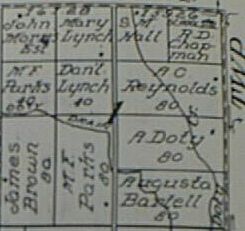 John
Morris
Est
Mary
Lynch
S M
Hall
A.D.
Chap-
man
M F
Parks
40
Dan'l
Lynch
40
A C
Reynolds
80
Drain
James
Brown
80
M F
Parks
80
A. Doty
80
Augusta
Bartell
80